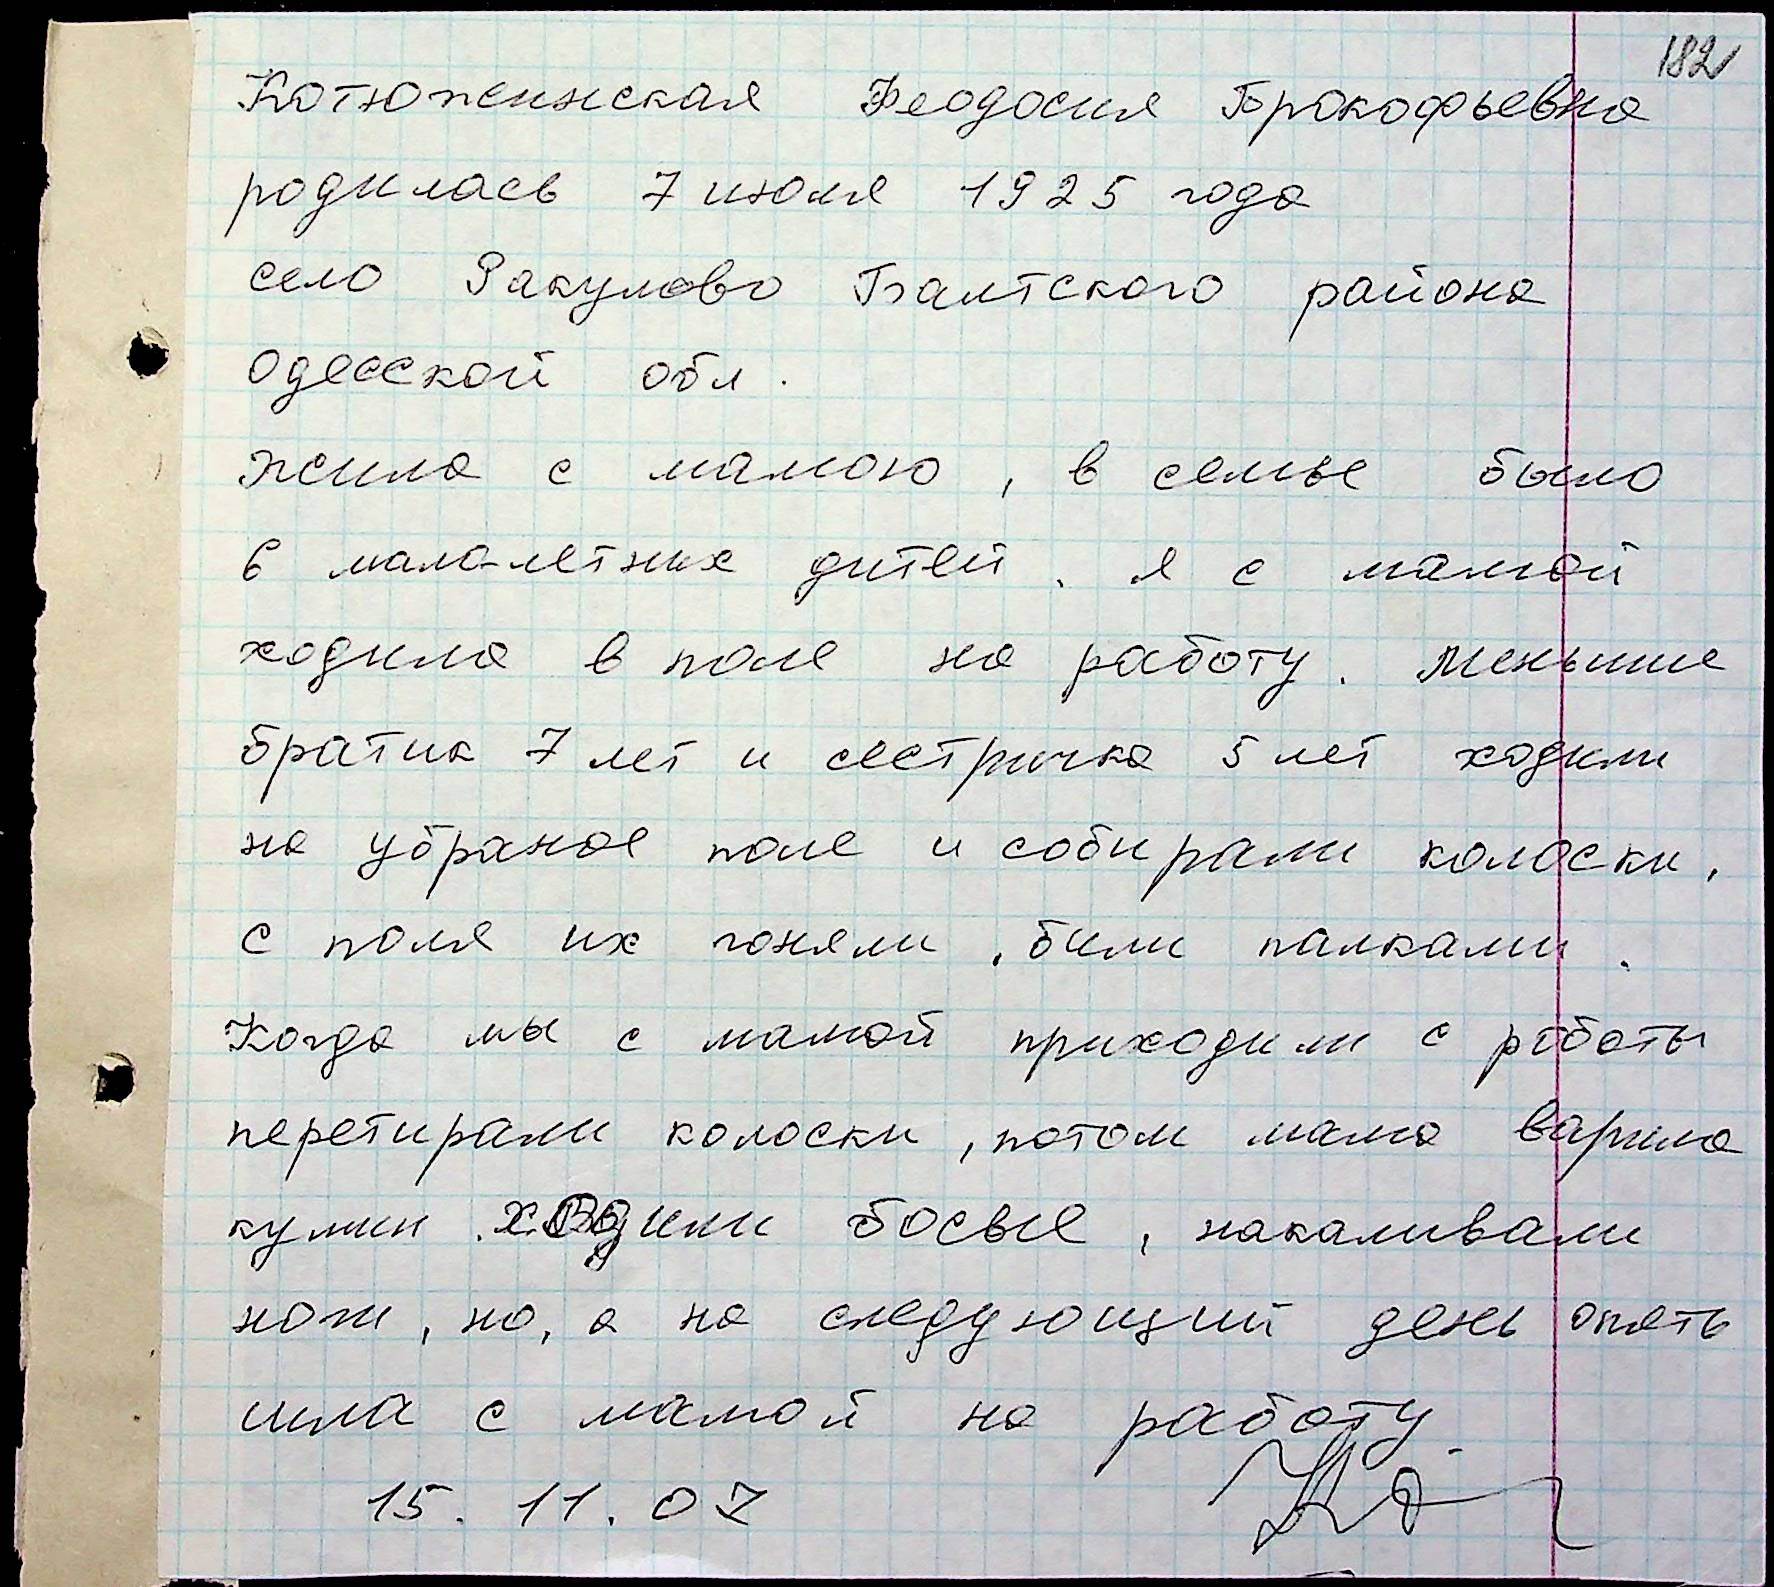 182
Котюжинская Феодосия Прокофьевна
родилась 7 июля 1925 года
село Ракулово Балтского района
Одесской обл.
жила с мамою, в семье было
6 мало-летних дитей. я с мамой
ходила в поле на работу. Меньшие
братик 7 лет и сестричка 5 лет ходили
на убраное поле и собирали колоски,
с поля их гоняли, били палками.
Когда мы с мамой приходили с работы
перетирали колоски, потом мама варила
кулиш. ходили босые, накаливали
ноги, но, а на следующий день опять
шла с мамой на работу.
15.11.07